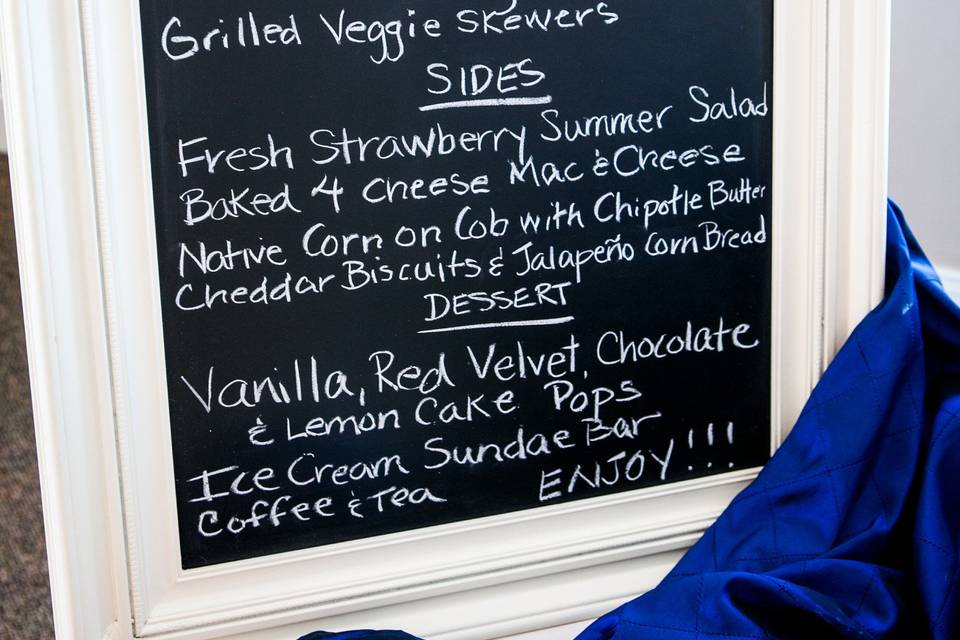 Grilled Veggie Skewers
SIDES
Fresh Strawberry Summer Salad
Baked 4 Cheese Mac & Cheese
Native Corn on Cob with Chipotle Butter
Cheddar Biscuits & Jalapeño Corn Bread
DESSERT
Vanilla, Red Velvet, Chocolate
& Lemon Cake Pops
Ice Cream Sundae Bar
Coffee & Tea ENJOY!!!